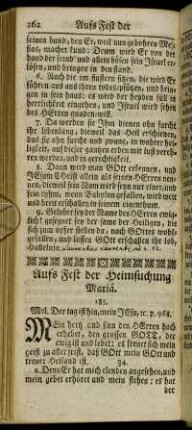 262 Aufs Fest der
seinen bund, den Er, weil nun gebohren Mes-
sias, machet kund: Denn wird Er von der
hand der feind und allen bösen sein Israel er-
lösen, und bringen in den stand.
6. Auch die im finstern sitzen, die wird Er
führen aus
herrlichkeit eingehen, und Israel wird sehen
des HErren
7. Da werden sie Ihm dienen ohn furcht
ihr lebenlang, dieweil das Heil erschienen,
das sie ohn andre und zwang, in wahrer hei-
ligkeit, auf dieser gantzen erden mit lust vereh-
ret werden, und in gerechtigkeit.
8. Dann wird man GOtt erkennen, und
JEsum Christ allein als seinen HErren nen-
nen, dieweil sein Nam wird seyn nur einer, und
sein rühm, wenn Babylon gefallet, wird weit
und breit erschallen in seinem
9. Gelobet sey der Name des HErren ewig-
lich! gesegnet sey der same der Heiligen, die
sich zum opfer stellen da, nach GOttes wohl-
gefallen, und lassen GOtt erschallen ihr lob,
Halleluja.
Aufs Fest der Heimsuchung
Mariä.
185.
Mel. Der tag ist hin, mein JEsu, ꝛc. p. 968.
MEin hertz und sinn den HErren hoch
erhebet, den grossen GOTT, der
ewig ist und lebet: es freuet sich mein
geist zu aller frist, daß GOtt mein GOtt und
treuer Heiland ist.
2. Denn Er hat mich elenden angesehen, und
mein gebet erhöret und mein flehen; es hat
der